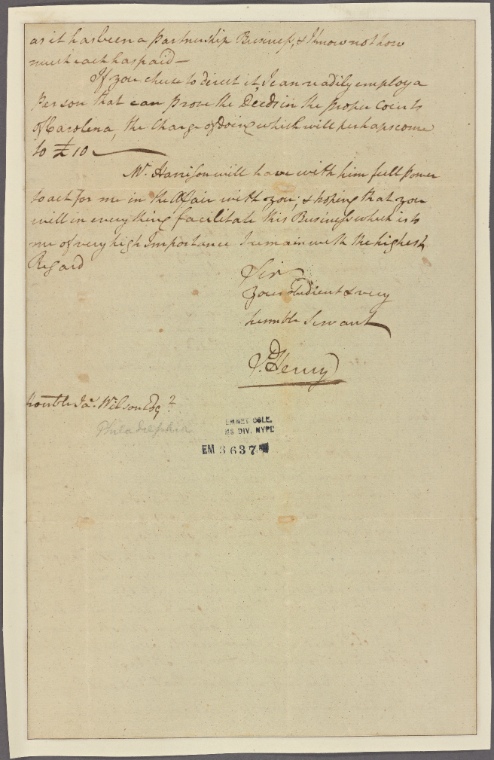 as it has been a Partnership Business, & I know not how
much each has paid —
If you chuse to direct it, I can readily employ a
Person that can prove the Deeds in the proper Courts
of Carolina, the Charge of doing which will perhaps come
to £ 10 —
Mr. Harrison will have with him full power
to act for me in the Affair with you; & hoping that you
will in every thing facilitate this Business which is to
me of very high Importance I remain with the highest
Regard
Sir
your obedient & very
humble Servant
P. Henry
Honble Jas. Wilson Esqr.
Philadelphia
EMMET COLL.
MS DIV. NYPL
EM 3637